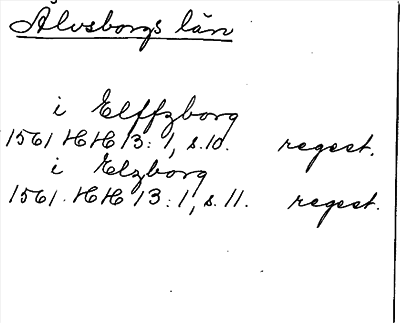 Älvsborgs län
i Elffzborg
1561 HH 13:1, s.10. regest.
i Elzborg
1561. HH 13:1, s.11. regest.